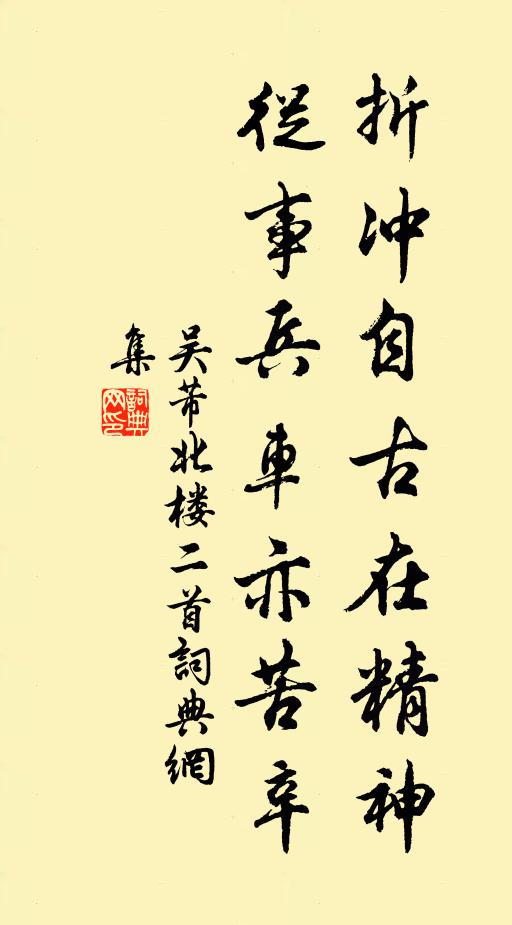 折冲自古在精神
從事兵車亦苦辛
吴芾北楼二首詞典網
集
詞典网印